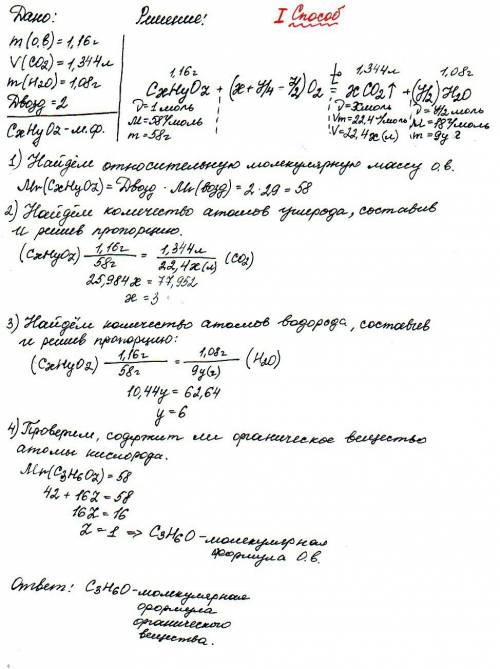 Дано:
Решение:
I Способ
m(о.в) = 1,16г
V(CO2) = 1,344л
m(H2O) = 1,08г
Dвозд = 2
CxHyOz - м.ф.
1,16г 1,344л 1,08г
CxHyOz + (x + y/4 - z/2) O2 t= xCO2↑ + (y/2) H2O
ν = 1 моль ν = x моль ν = y/2 моль
M = 58г/моль Vm = 22,4л/моль M = 18г/моль
m = 58г V = 22,4x (л) m = 9y г
1) Найдём относительную молекулярную массу о.в.
Mr(CxHyOz) = Dвозд · Mr(возд) = 2 · 29 = 58
2) Найдём количество атомов углерода, составив
и решив пропорцию.
(CxHyOz) 1,16г/58г = 1,344л/22,4x(л) (CO2)
25,984x = 77,952
x = 3
3) Найдём количество атомов водорода, составив
и решив пропорцию:
(CxHyOz) 1,16г/58г = 1,08г/9y(г) (H2O)
10,44y = 62,64
y = 6
4) Проверим, содержит ли органическое вещество
атомы кислорода.
Mr(C3H6Oz) = 58
42 + 16z = 58
16z = 16
z = 1 => C3H6O - молекулярная
формула о.в.
Ответ: C3H6O - молекулярная
формула
органического
вещества.